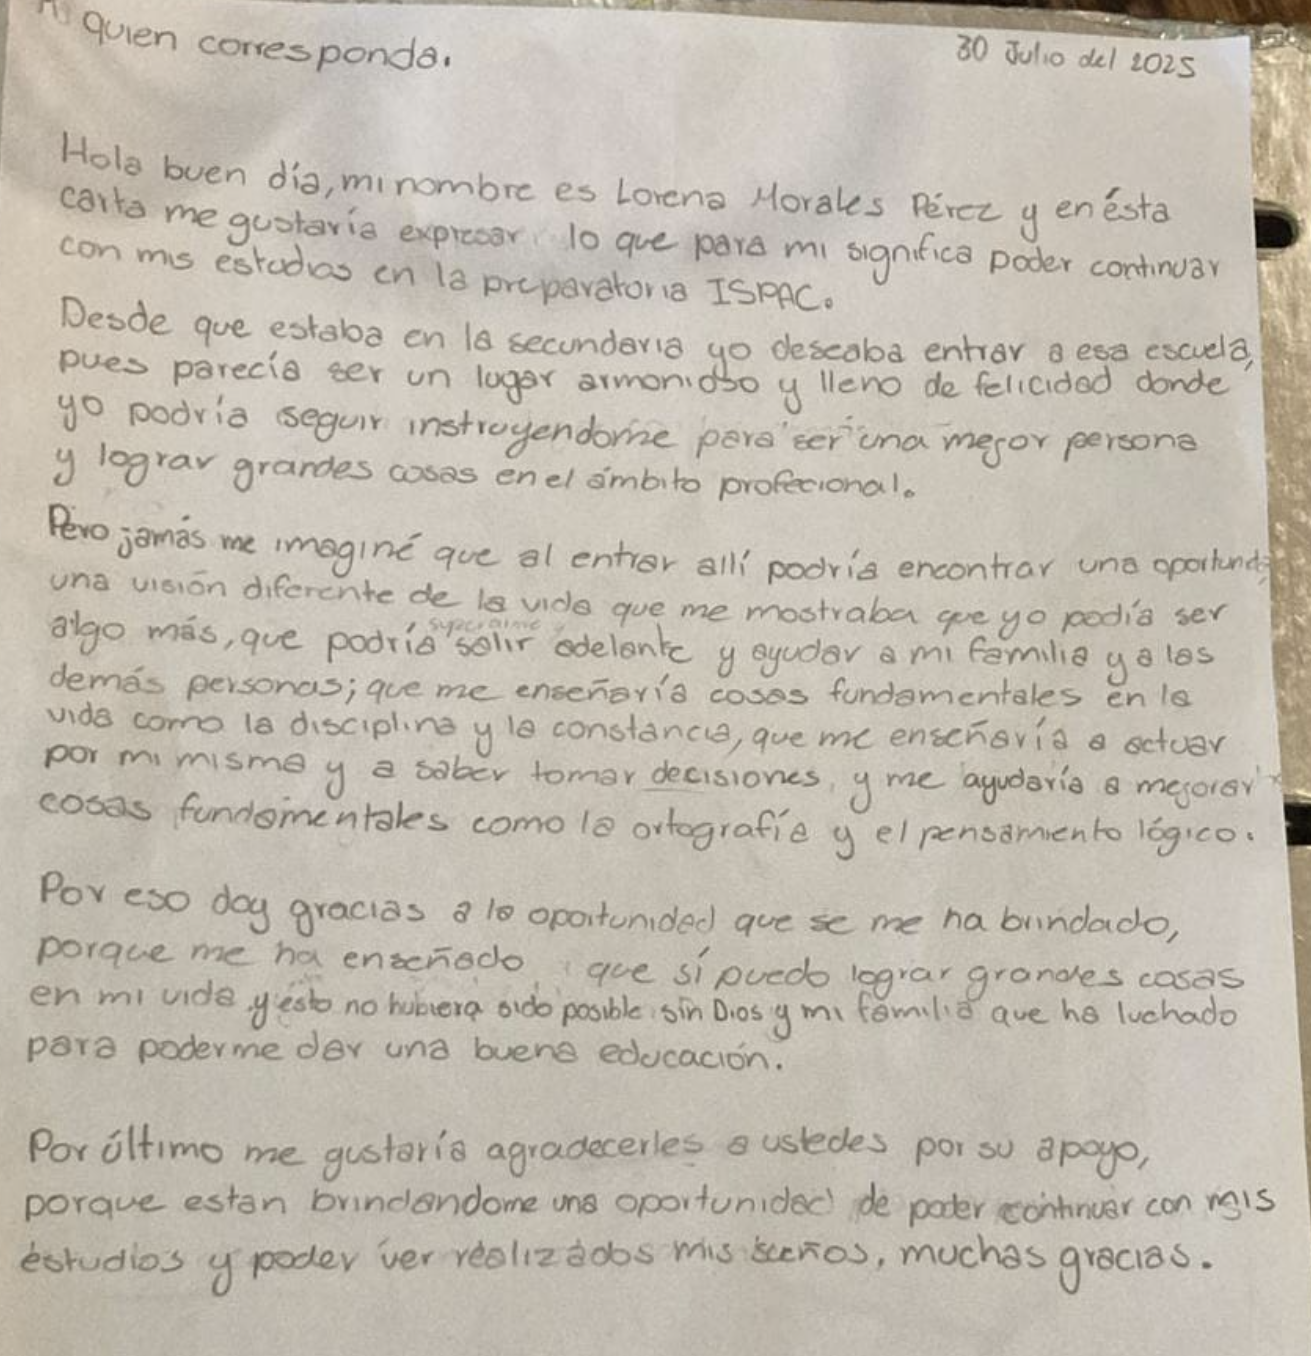 A quien corresponda.
30 Julio del 2025
Hola buen día, mi nombre es Lorena Morales Pérez y en ésta
carta me gustaría expresar lo que para mi significa poder continuar
con mis estudios en la preparatoria ISPAC.
Desde que estaba en la secundaria yo deseaba entrar a esa escuela,
pues parecía ser un lugar armonioso y lleno de felicidad donde
yo podría seguir instruyendome para ser una mejor persona
y lograr grandes cosas en el ámbito profecional.
Pero jamás me imaginé que al entrar allí podría encontrar una
una visión diferente de la vida que me mostraba que yo podía ser
algo más, que podría salir adelante y ayudar a mi familia y a las
demás personas; que me enseñaría cosas fundamentales en la
vida como la disciplina y la constancia, que me enseñaría a actuar
por mi misma y a saber tomar decisiones, y me ayudaría a mejorar
cosas fundamentales como la ortografía y el pensamiento lógico.
Por eso doy gracias a la oportunidad que se me ha brindado,
porque me ha enseñado que sí puedo lograr grandes cosas
en mi vida y ésto no hubiera sido posible sin Dios y mi familia que ha luchado
para poderme dar una buena educación.
Por último me gustaría agradecerles a ustedes por su apoyo,
porque estan brindandome una oportunidad de poder continuar con mis
estudios y poder ver realizados mis sueños, muchas gracias.